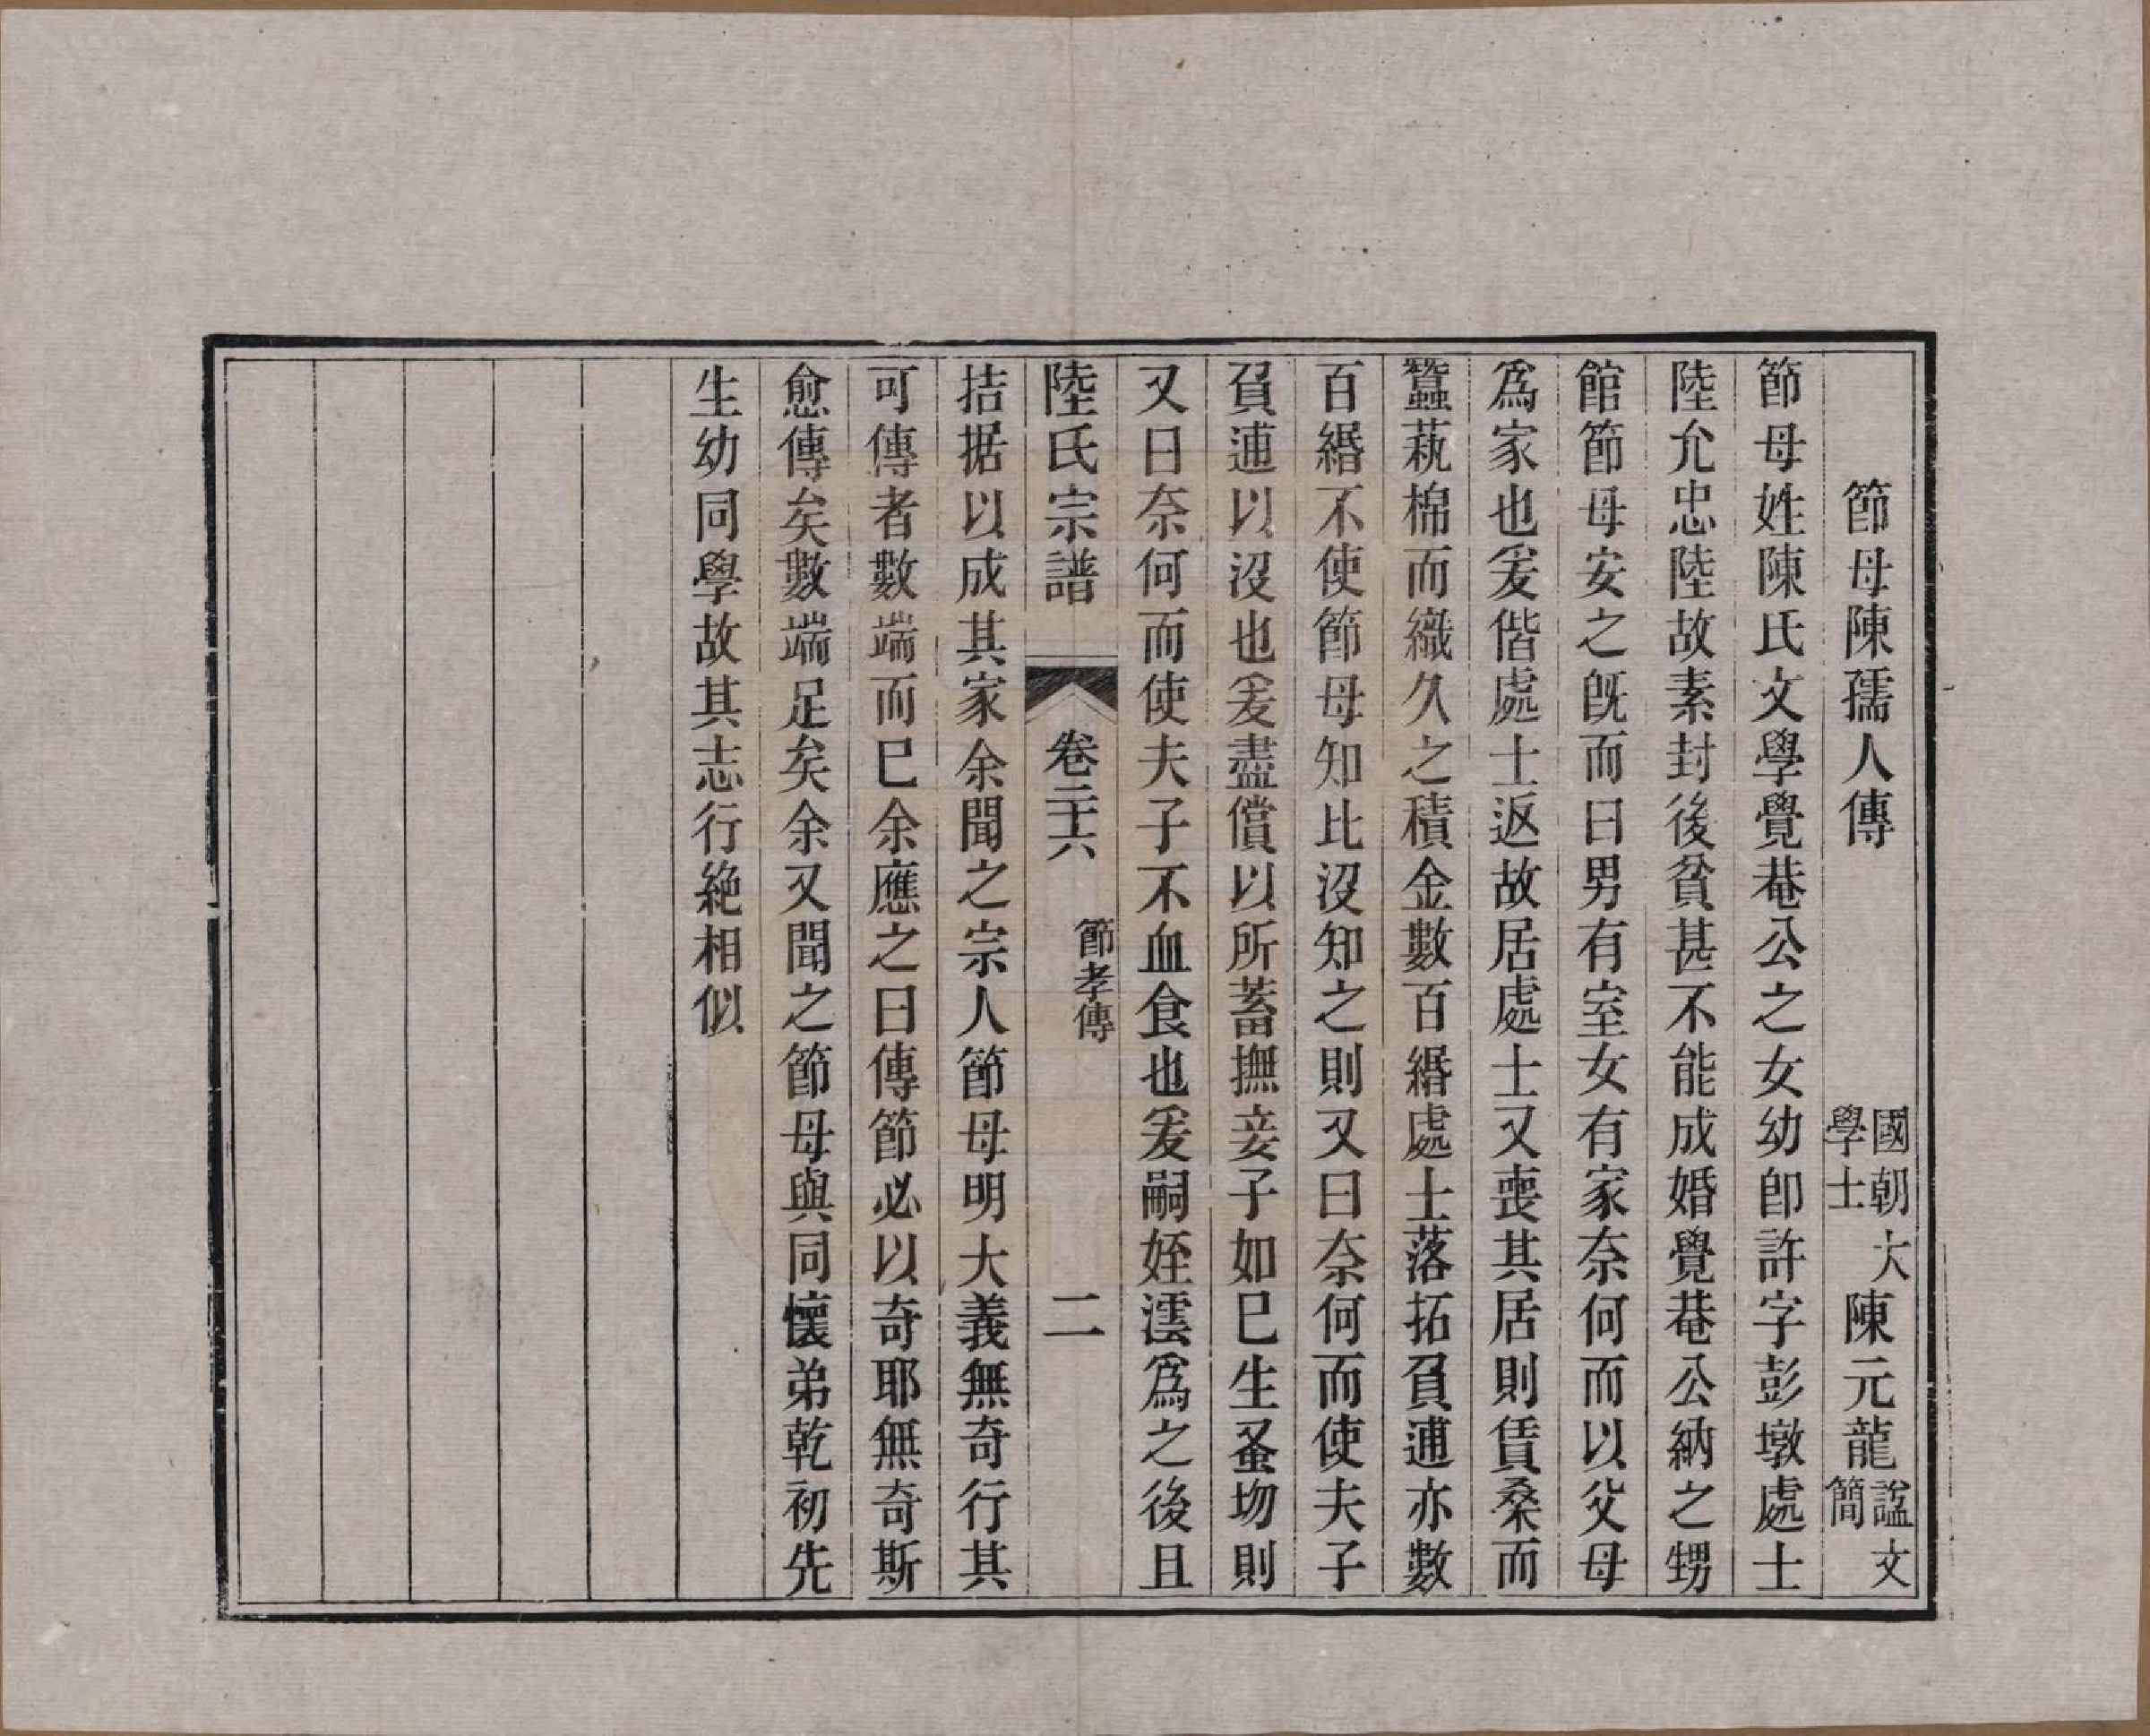 節母陳孺人傳　國朝大學士陳元龍謚文簡
節母姓陳氏文學覺菴公之女幼卽許字彭墩處士
陸允忠陸故素封後貧甚不能成婚覺菴公納之甥
館節母安之旣而曰男有室女有家奈何而以父母
爲家也爰偕處士返故居處士又喪其居則賃桑而
蠶蓺棉而織久之積金數百緡處士落拓負逋亦數
百緡不使節母知比沒知之則又曰奈何而使夫子
負逋以沒也爰盡償以所蓄撫妾子如己生蚤刎則
又曰奈何而使夫子不血食也爰嗣姪澐爲之後且
陸氏宗譜　卷二十六　節孝傳　二
拮据以成其家余聞之宗人節母明大義無奇行其
可傳者數端而已余應之曰傳節必以奇耶無奇斯
愈傳矣數端足矣余又聞之節母與同懷弟乾初先
生幼同學故其志行絶相似